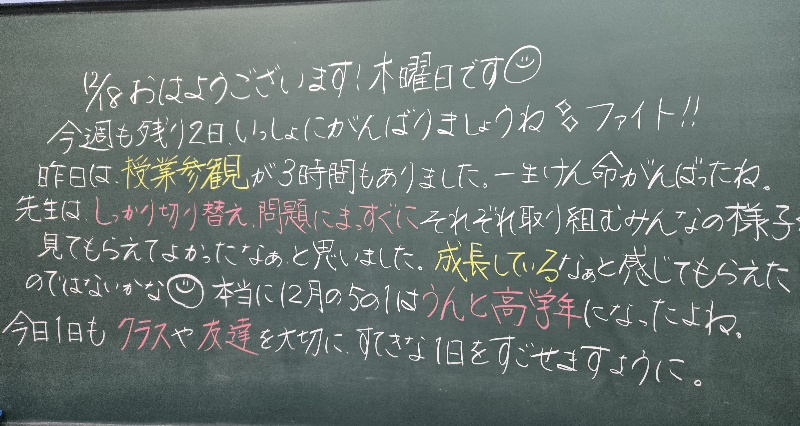 12/18 おはようございます！木曜日です
今週も残り2日、いっしょにがんばりましょうね ファイト!!
昨日は、授業参観が3時間もありました。一生けん命がんばったね。
先生は、しっかり切り替え、問題にまっすぐにそれぞれ取り組むみんなの様子を
見てもらえてよかったなぁ、と思いました。成長しているなぁと感じてもらえた
のではないかな 本当に12月の5の1はうんと高学年になったよね。
今日1日も クラスや友達を大切に、すてきな1日をすごせますように。